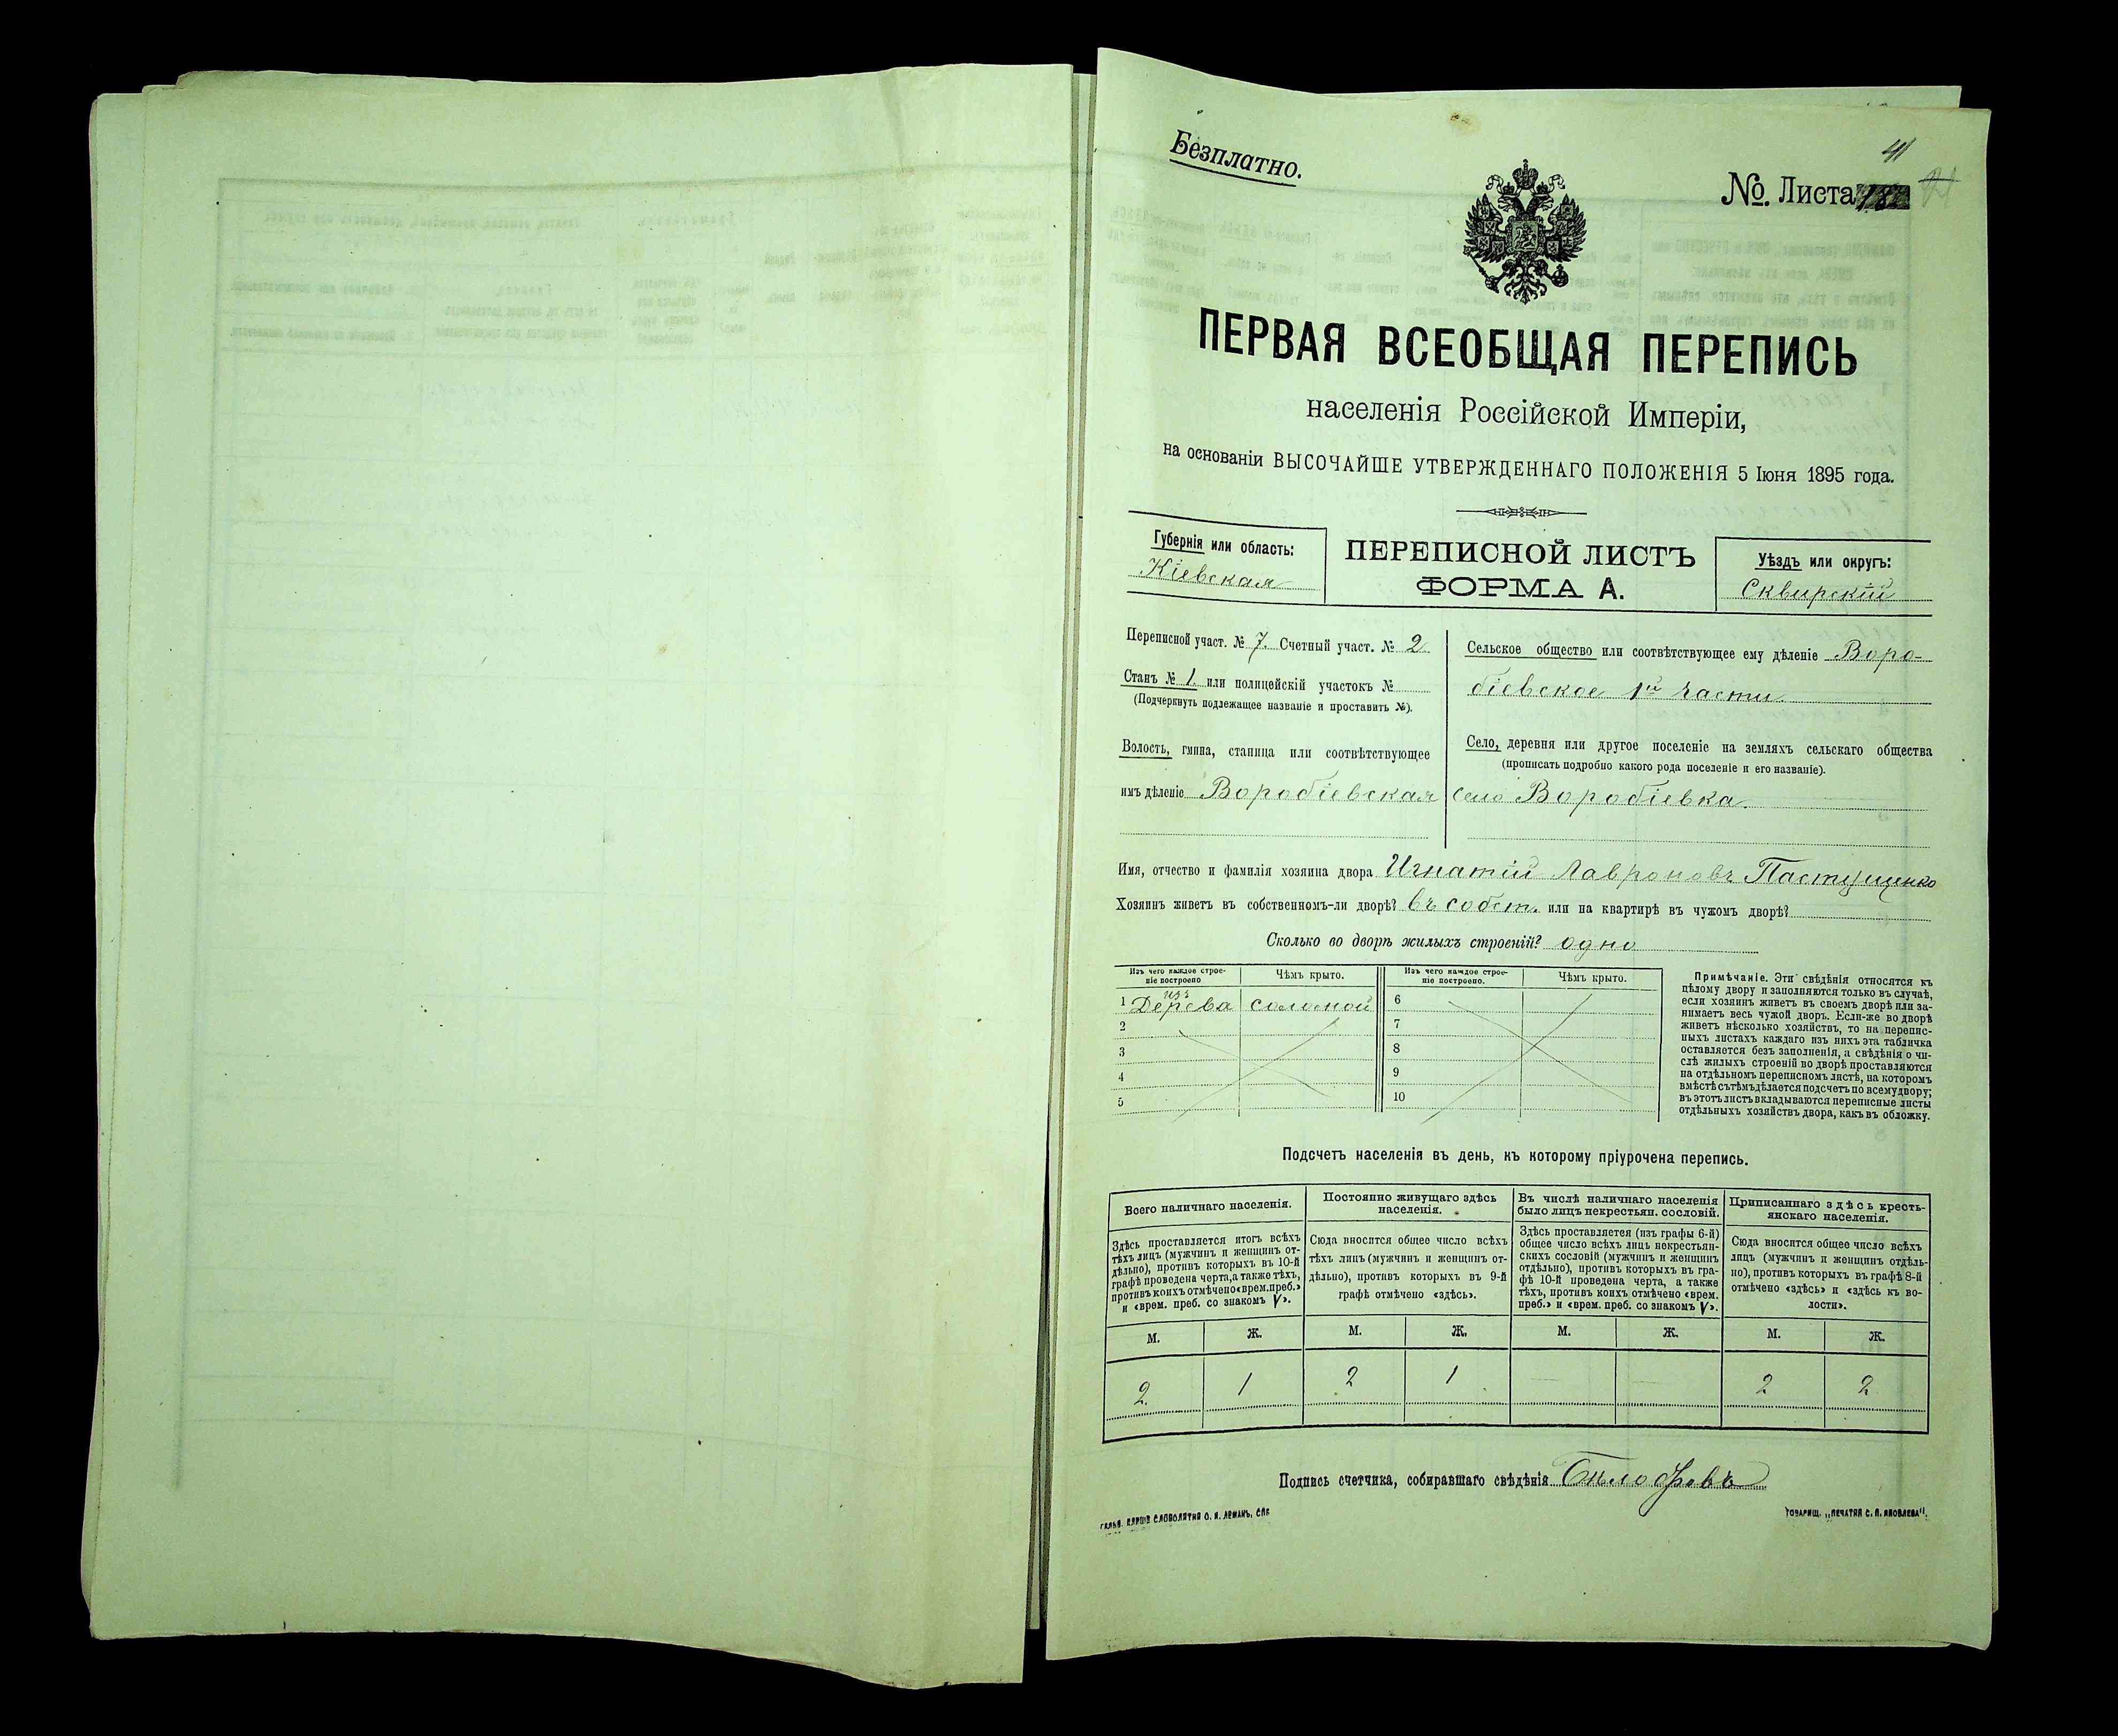 Безплатно.
41
№. Листа 18
ПЕРВАЯ ВСЕОБЩАЯ ПЕРЕПИСЬ
населенія Россійской Имперіи,
на основаніи ВЫСОЧАЙШЕ УТВЕРЖДЕННАГО ПОЛОЖЕНІЯ 5 Іюня 1895 года.
Губернія или область:
Кіевская
ПЕРЕПИСНОЙ ЛИСТЪ
ФОРМА А.
Уѣздъ или округъ:
Сквирскій
Переписной участ. № 7. Счетный участ. № 2
Станъ № 1 или полицейскій участокъ №
(Подчеркнуть подлежащее названіе и проставить №).
Волость, гмина, станица или соотвѣтствующее
имъ дѣленіе Воробіевская
Сельское общество или соотвѣтствующее ему дѣленіе Воро-
біевское 1й части
Село, деревня или другое поселеніе на земляхъ сельскаго общества
(прописать подробно какого рода поселеніе и его названіе).
село Воробіевка.
Имя, отчество и фамилія хозяина двора Игнатій Лавроновъ Пастущенко
Хозяинъ живетъ въ собственномъ-ли дворѣ? въ собст. или на квартирѣ въ чужомъ дворѣ?
Сколько во дворѣ жилыхъ строеній? одно
Изъ чего каждое строе-
ніе построено
Чѣмъ крыто.
Изъ чего каждое строе-
ніе построено.
Чѣмъ крыто.
1 изъ Дерева соломой
2
3
4
5
6
7
8
9
10
Примѣчаніе. Эти свѣдѣнія относятся къ
цѣлому двору и заполняются только въ случаѣ,
если хозяинъ живетъ въ своемъ дворѣ или за-
нимаетъ весь чужой дворъ. Если-же во дворѣ
живетъ нѣсколько хозяйствъ, то на перепис-
ныхъ листахъ каждаго изъ нихъ эта табличка
оставляется безъ заполненія, а свѣдѣнія о чи-
слѣ жилыхъ строеній во дворѣ проставляются
на отдѣльномъ переписномъ листѣ, на которомъ
вмѣстѣ съ тѣмъ дѣлается подсчетъ по всему двору;
въ этотъ листъ вкладываются переписные листы
отдѣльныхъ хозяйствъ двора, какъ въ обложку.
Подсчетъ населенія въ день, къ которому пріурочена перепись.
Всего наличнаго населенія.
Здѣсь проставляется итогъ всѣхъ
тѣхъ лицъ (мужчинъ и женщинъ от-
дѣльно), противъ которыхъ въ 10-й
графѣ проведена черта, а также тѣхъ,
противъ коихъ отмѣчено «врем. преб.»
и «врем. преб. со знакомъ V».
Постоянно живущаго здѣсь
населенія.
Сюда вносится общее число всѣхъ
тѣхъ лицъ (мужчинъ и женщинъ от-
дѣльно), противъ которыхъ въ 9-й
графѣ отмѣчено «здѣсь».
Въ числѣ наличнаго населенія
было лицъ некрестьян. сословій.
Здѣсь проставляется (изъ графы 6-й)
общее число всѣхъ лицъ некрестьян-
скихъ сословій (мужчинъ и женщинъ
отдѣльно), противъ которыхъ въ гра-
фѣ 10-й проведена черта, а также
тѣхъ, противъ коихъ отмѣчено «врем.
преб.» и «врем. преб. со знакомъ V».
Приписаннаго здѣсь кресть-
янскаго населенія.
Сюда вносится общее число всѣхъ
лицъ (мужчинъ и женщинъ отдѣль-
но), противъ которыхъ въ графѣ 8-й
отмѣчено «здѣсь» и «здѣсь къ во-
лости».
М. Ж. М. Ж. М. Ж. М. Ж.
2. 1 2 1 — — 2 2
Подпись счетчика, собиравшаго свѣдѣнія
СЛОВОЛИТНЯ О. И. ЛЕМАНЪ, СПБ
ТОВАРИЩ. „ПЕЧАТНЯ С. П. ЯКОВЛЕВА“.